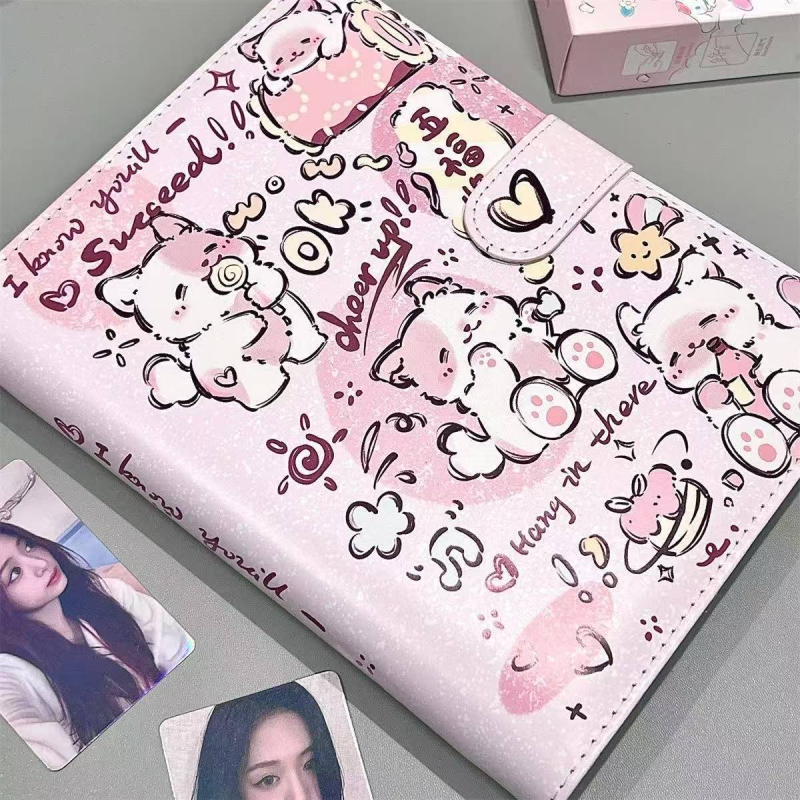 I know you'll —
Succeed!!
OK
cheer up!!
五
福
Hang in there
I know you'll —